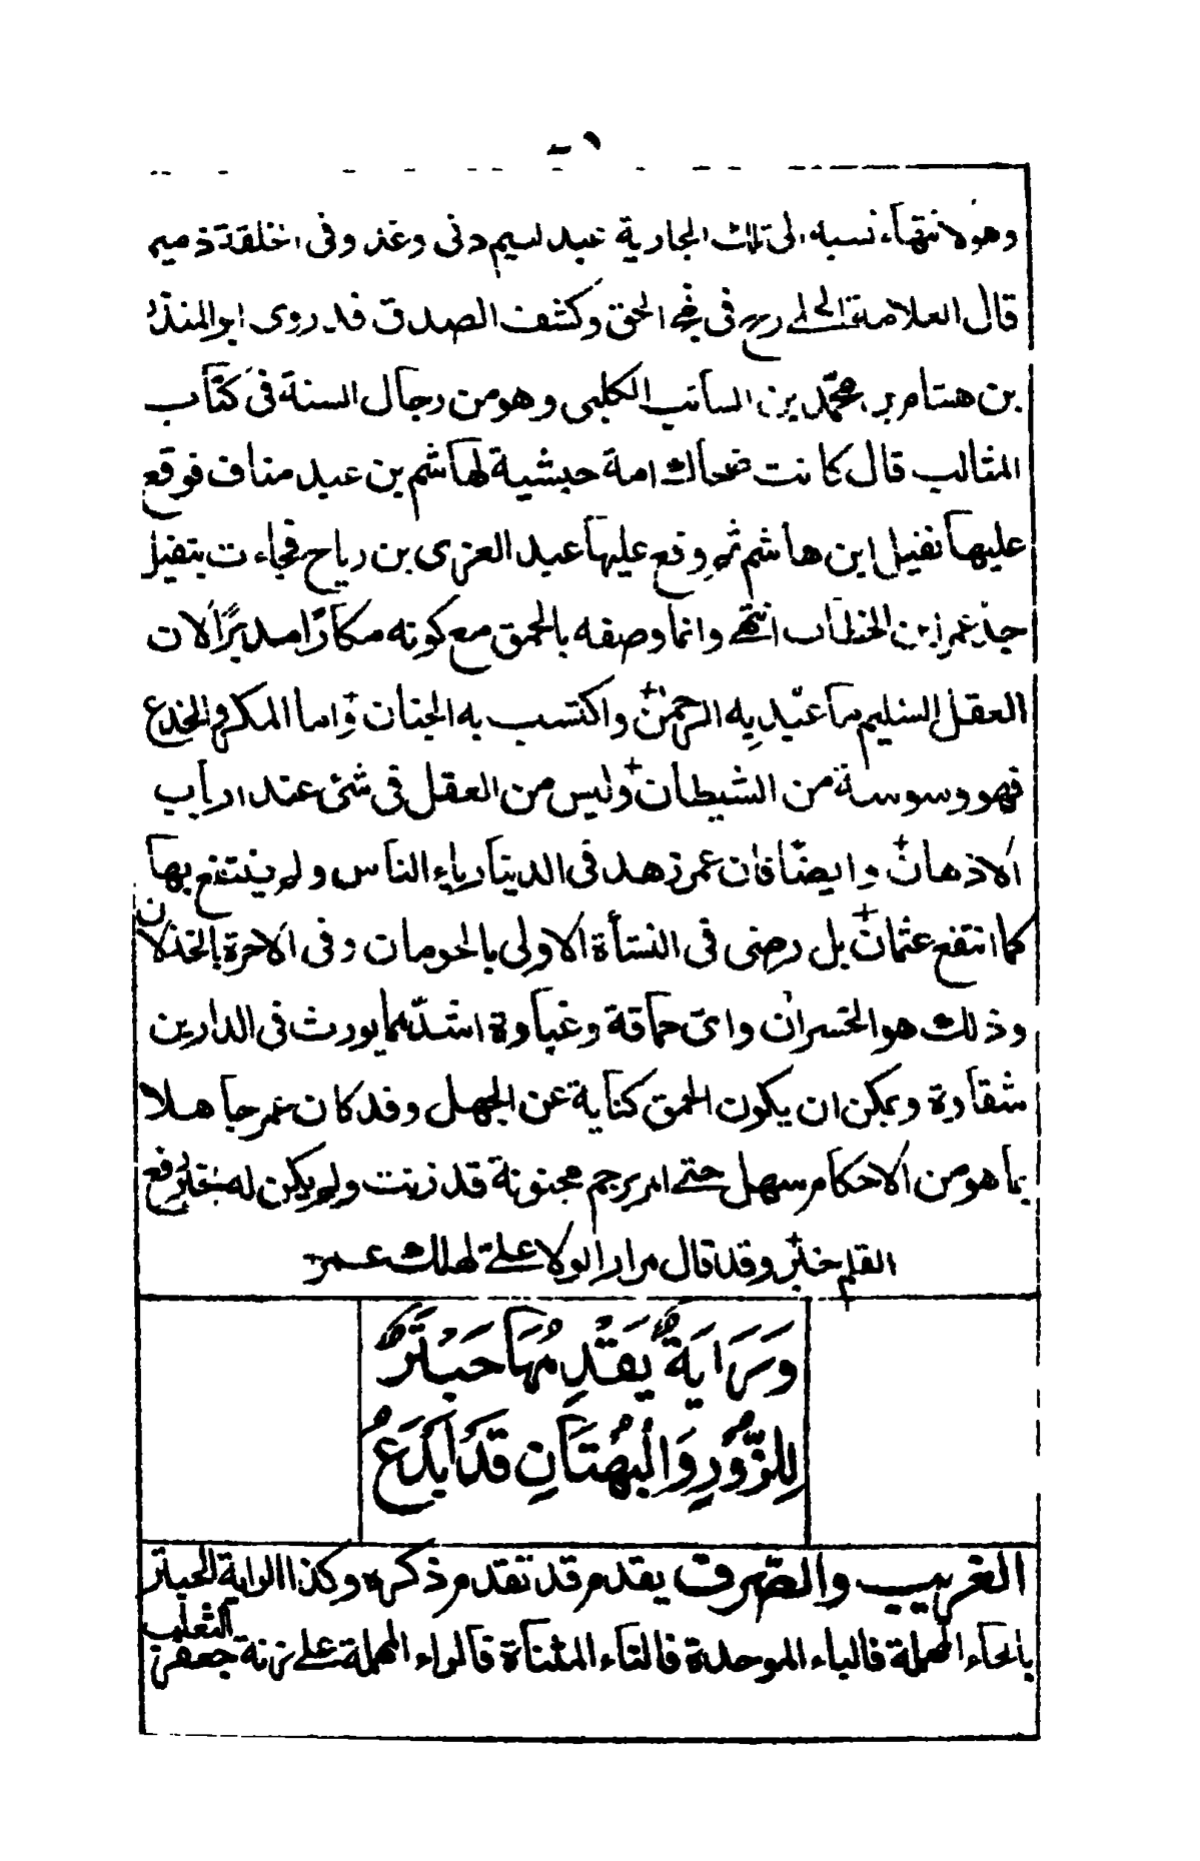 وهو لانتهاء نسبه الى تلك الجارية عبد لئيم دنى وغد وفى اخلقة ذميم
قال العلامة الحلى رح فى نهج الحق وكشف الصدق قد روى ابو المنذر
بن هشام بن محمد بن السائب الكلبى وهو من رجال السنة فى كتاب
المثالب قال كانت ضحاك امة حبشية لهاشم بن عبد مناف فوقع
عليها نفيل ابن هاشم ثم وقع عليها عبد العزى بن رياح فجاءت بنفيل
جد عمر ابن الخطاب انتهى وانما وصفه بالحمق مع كونه مكارا مدبرا لان
العقل السليم ما عبد به الرحمن واكتسب به الجنان واما المكر والخدع
فهو وسوسة من الشيطان وليس من العقل فى شئ عند ارباب
الاذهان وايضا فان عمر زهد فى الدنيا رياء الناس ولم ينتفع بها
كما انتفع عثمان بل رضى فى النشأة الاولى بالحرمان وفى الاخرة بالخذلان
وذلك هو الخسران واى حماقة وغباوة اشد مما يورث فى الدارين
شقاوة ويمكن ان يكون الحمق كناية عن الجهل وقد كان عمر جاهلا
بما هو من الاحكام سهل حتى امر برجم مجنونة قد زنت ولم يكن له بخبر رفع
القلم خبر وقد قال مرارا لولا على لهلك عمر
وَرَايَةٌ يَقْدِمُهَا حَبْتَرٌ
لِلزُّورِ وَالْبُهْتَانِ قَدْ اَبْدَعُ
الغريب والصرف يقدم قد تقدم ذكره وكذا الراية الحبتر
بالحاء المهملة فالباء الموحدة فالتاء المثناة فالراء المهملة على زنة جعفر الثعلب